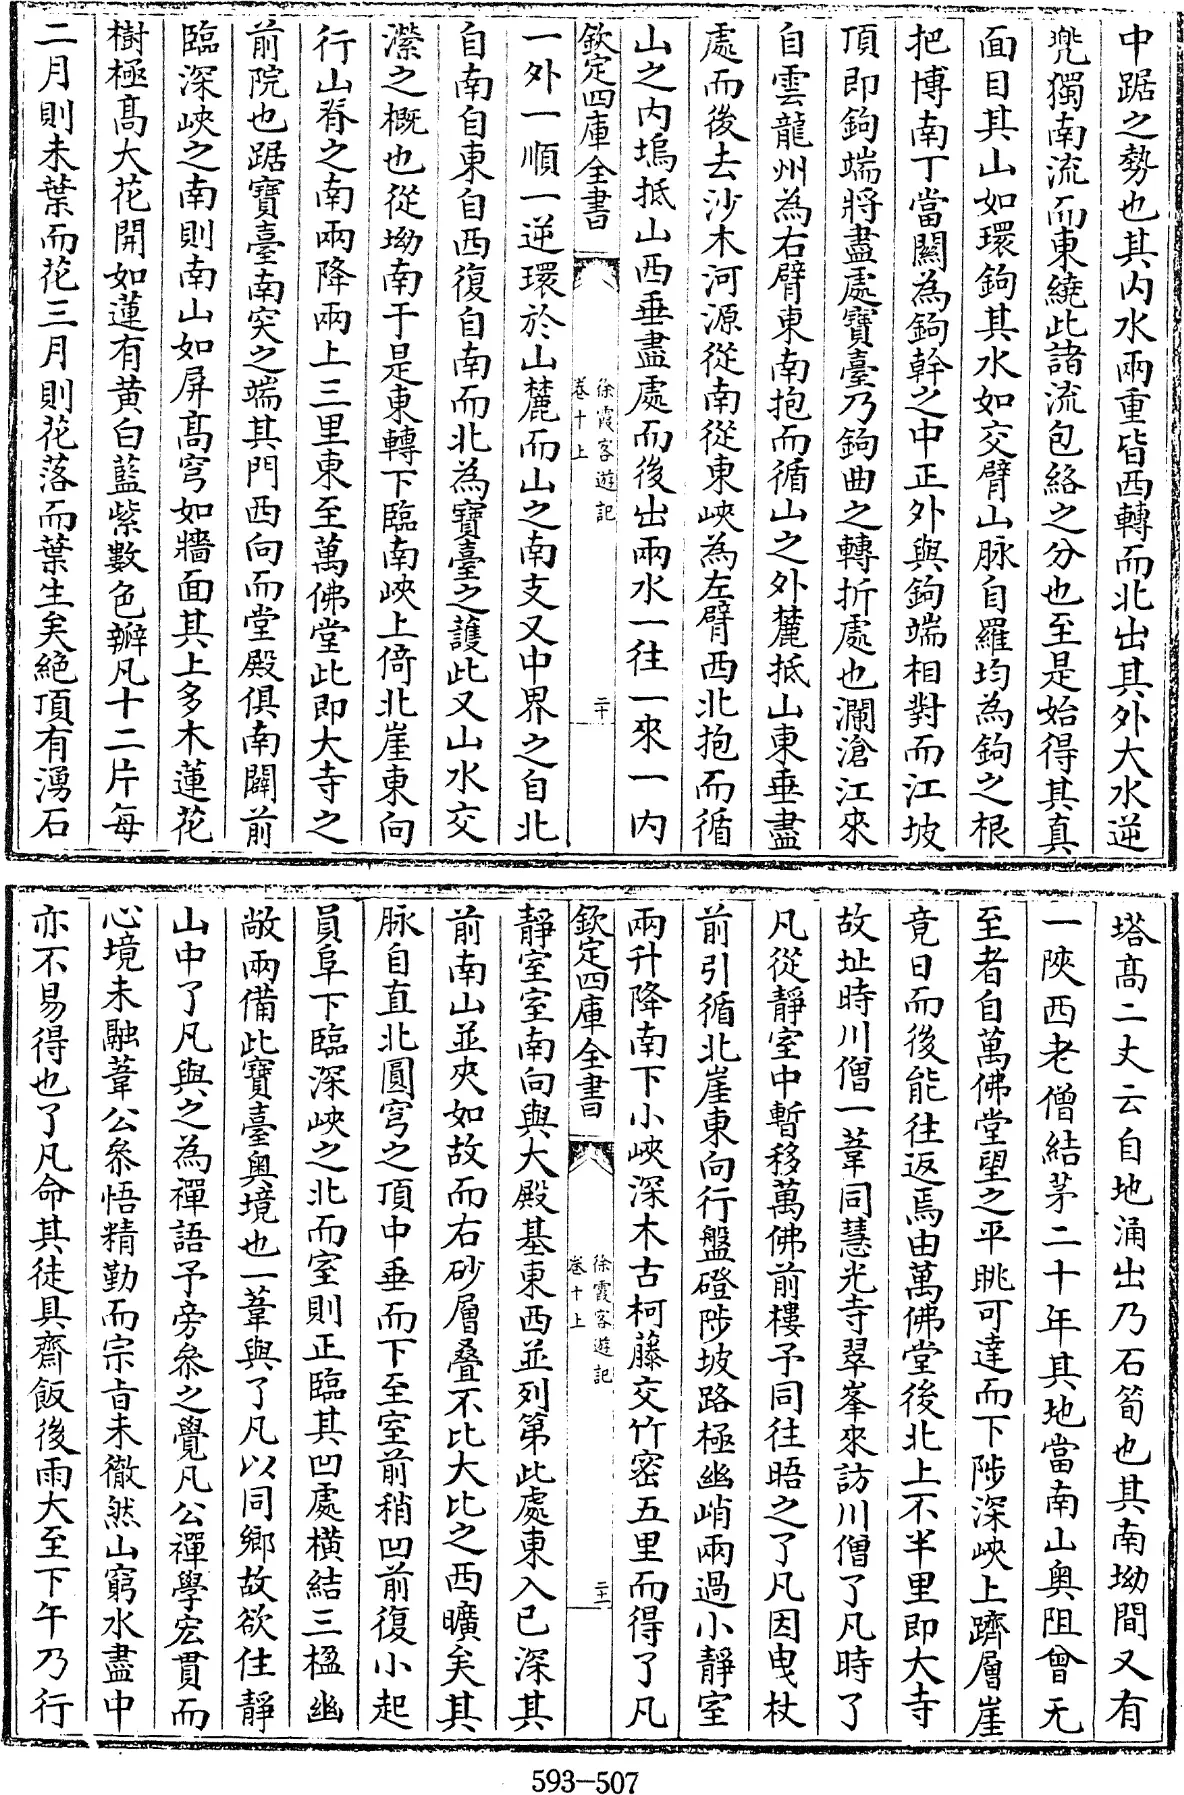 中踞之勢也其内水兩重皆西轉而北出其外大水逆
兜獨南流而東繞此諸流包絡之分也至是始得其真
面目其山如環鉤其水如交臂山脉自羅均為鉤之根
把博南丁當關為鉤幹之中正外與鉤端相對而江坡
頂即鉤端將盡處寶臺乃鉤曲之轉折處也瀾滄江來
自雲龍州為右臂東南抱而循山之外麓抵山東垂盡
處而後去沙木河源從南從東峽為左臂西北抱而循
山之内塢抵山西垂盡處而後出兩水一往一來一内
欽定四庫全書
徐霞客遊記
卷十上
二十
一外一順一逆環於山麓而山之南支又中界之自北
自南自東自西復自南而北為寶臺之護此又山水交
瀠之概也從坳南于是東轉下臨南峽上倚北崖東向
行山脊之南兩降兩上三里東至萬佛堂此即大寺之
前院也踞寶臺南突之端其門西向而堂殿俱南闢前
臨深峽之南則南山如屏髙穹如牆面其上多木蓮花
樹極髙大花開如蓮有黄白藍紫數色瓣凡十二片每
二月則未葉而花三月則花落而葉生矣絶頂有湧石
塔髙二丈云自地涌出乃石筍也其南坳間又有
一陜西老僧結茅二十年其地當南山奥阻曾无
至者自萬佛堂望之平眺可達而下陟深峽上躋層崖
竟日而後能往返焉由萬佛堂後北上不半里即大寺
故址時川僧一葦同慧光寺翠峯來訪川僧了凡時了
凡從靜室中暫移萬佛前樓予同往晤之了凡因曳杖
前引循北崖東向行盤磴陟坡路極幽峭兩過小靜室
兩升降南下小峽深木古柯藤交竹密五里而得了凡
欽定四庫全書
徐霞客遊記
卷十上
二十一
靜室室南向與大殿基東西並列第此處東入已深其
前南山並夾如故而右砂層叠不比大比之西曠矣其
脉自直北圓穹之頂中垂而下至室前稍凹前復小起
員阜下臨深峽之北而室則正臨其凹處横結三楹幽
敞兩備此寶臺奥境也一葦與了凡以同鄉故欲住靜
山中了凡與之為禪語予旁叅之覺凡公禪學宏貫而
心境未融葦公叅悟精勤而宗旨未徹然山窮水盡中
亦不易得也了凡命其徒具齋飯後雨大至下午乃行
593—507